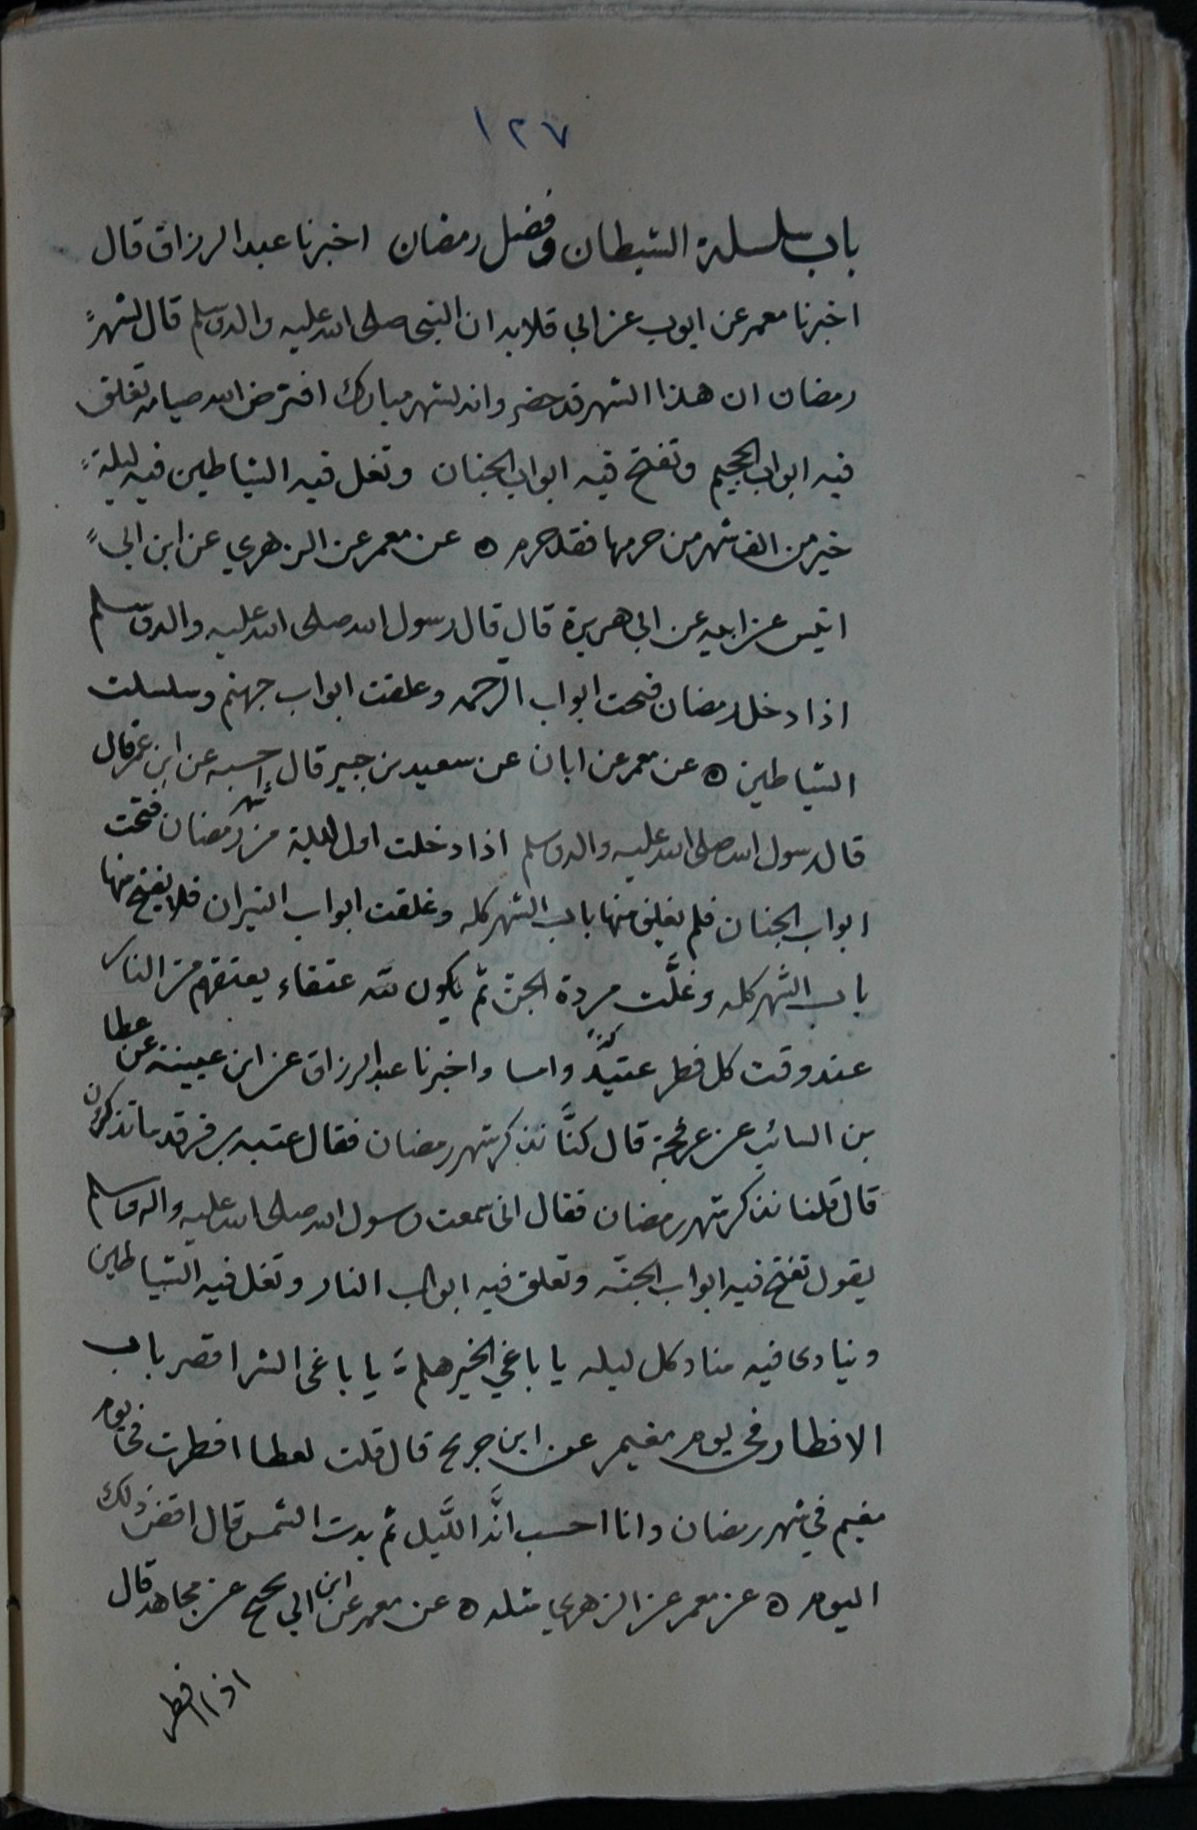 ١٢٧
باب سلسلة الشيطان وفضل رمضان اخبرنا عبد الرزاق قال
اخبرنا معمر عن ايوب عن ابي قلابه ان النبي صلى الله عليه واله وسلم قال لشهر
رمضان ان هذا الشهر قد حضر وانه لشهر مبارك افترض الله صيامه تغلق
فيه ابواب الجحيم وتفتح فيه ابواب الجنان وتغل فيه الشياطين فيه ليلة
خير من الف شهر من حرمها فقد حرم ه عن معمر عن الزهري عن ابن ابي
انيس عن ابيه عن ابي هريرة قال قال رسول الله صلى الله عليه واله وسلم
اذا دخل رمضان فتحت ابواب الرحمه وغلقت ابواب جهنم وسلسلت
الشياطين ه عن معمر عن ابان عن سعيد بن جبير قال احسبه عن ابن عمر قال
قال رسول الله صلى الله عليه واله وسلم اذا دخلت اول ليلة من شهر رمضان فتحت
ابواب الجنان فلم يغلق منها باب الشهر كله وغلقت ابواب النيران فلا يفتح منها
باب الشهر كله وغلَّت مردة الجن ثم يكون لله عتقاء يعتقهم من النار
عند وقت كل فطر واما واخبرنا عبد الرزاق عن ابن عيينة عن عطا
بن السائب عن عرفجة قال كنَّا نذكر شهر رمضان فقال عتبه بن فرقد ما تذكرون
قال قلنا نذكر شهر رمضان فقال انى سمعت رسول الله صلى الله عليه واله وسلم
يقول تفتح فيه ابواب الجنّه وتغلق فيه ابواب النار وتغل فيه الشياطين
وينادى فيه مناد كل ليله يا باغي الخير هلم يا باغى الشر اقصر باب
الافطار في يوم مغيم عن ابن جريج قال قلت لعطا افطرت في يوم
مغيم في شهر رمضان وانا احسب انَّه اللَّيل ثم بدت الشمس قال اقض ذلك
اليوم ه عن معمر عن الزهري مثله ه عن معمر عن ابن ابي نجيح عن مجاهد قال
اذا افطر